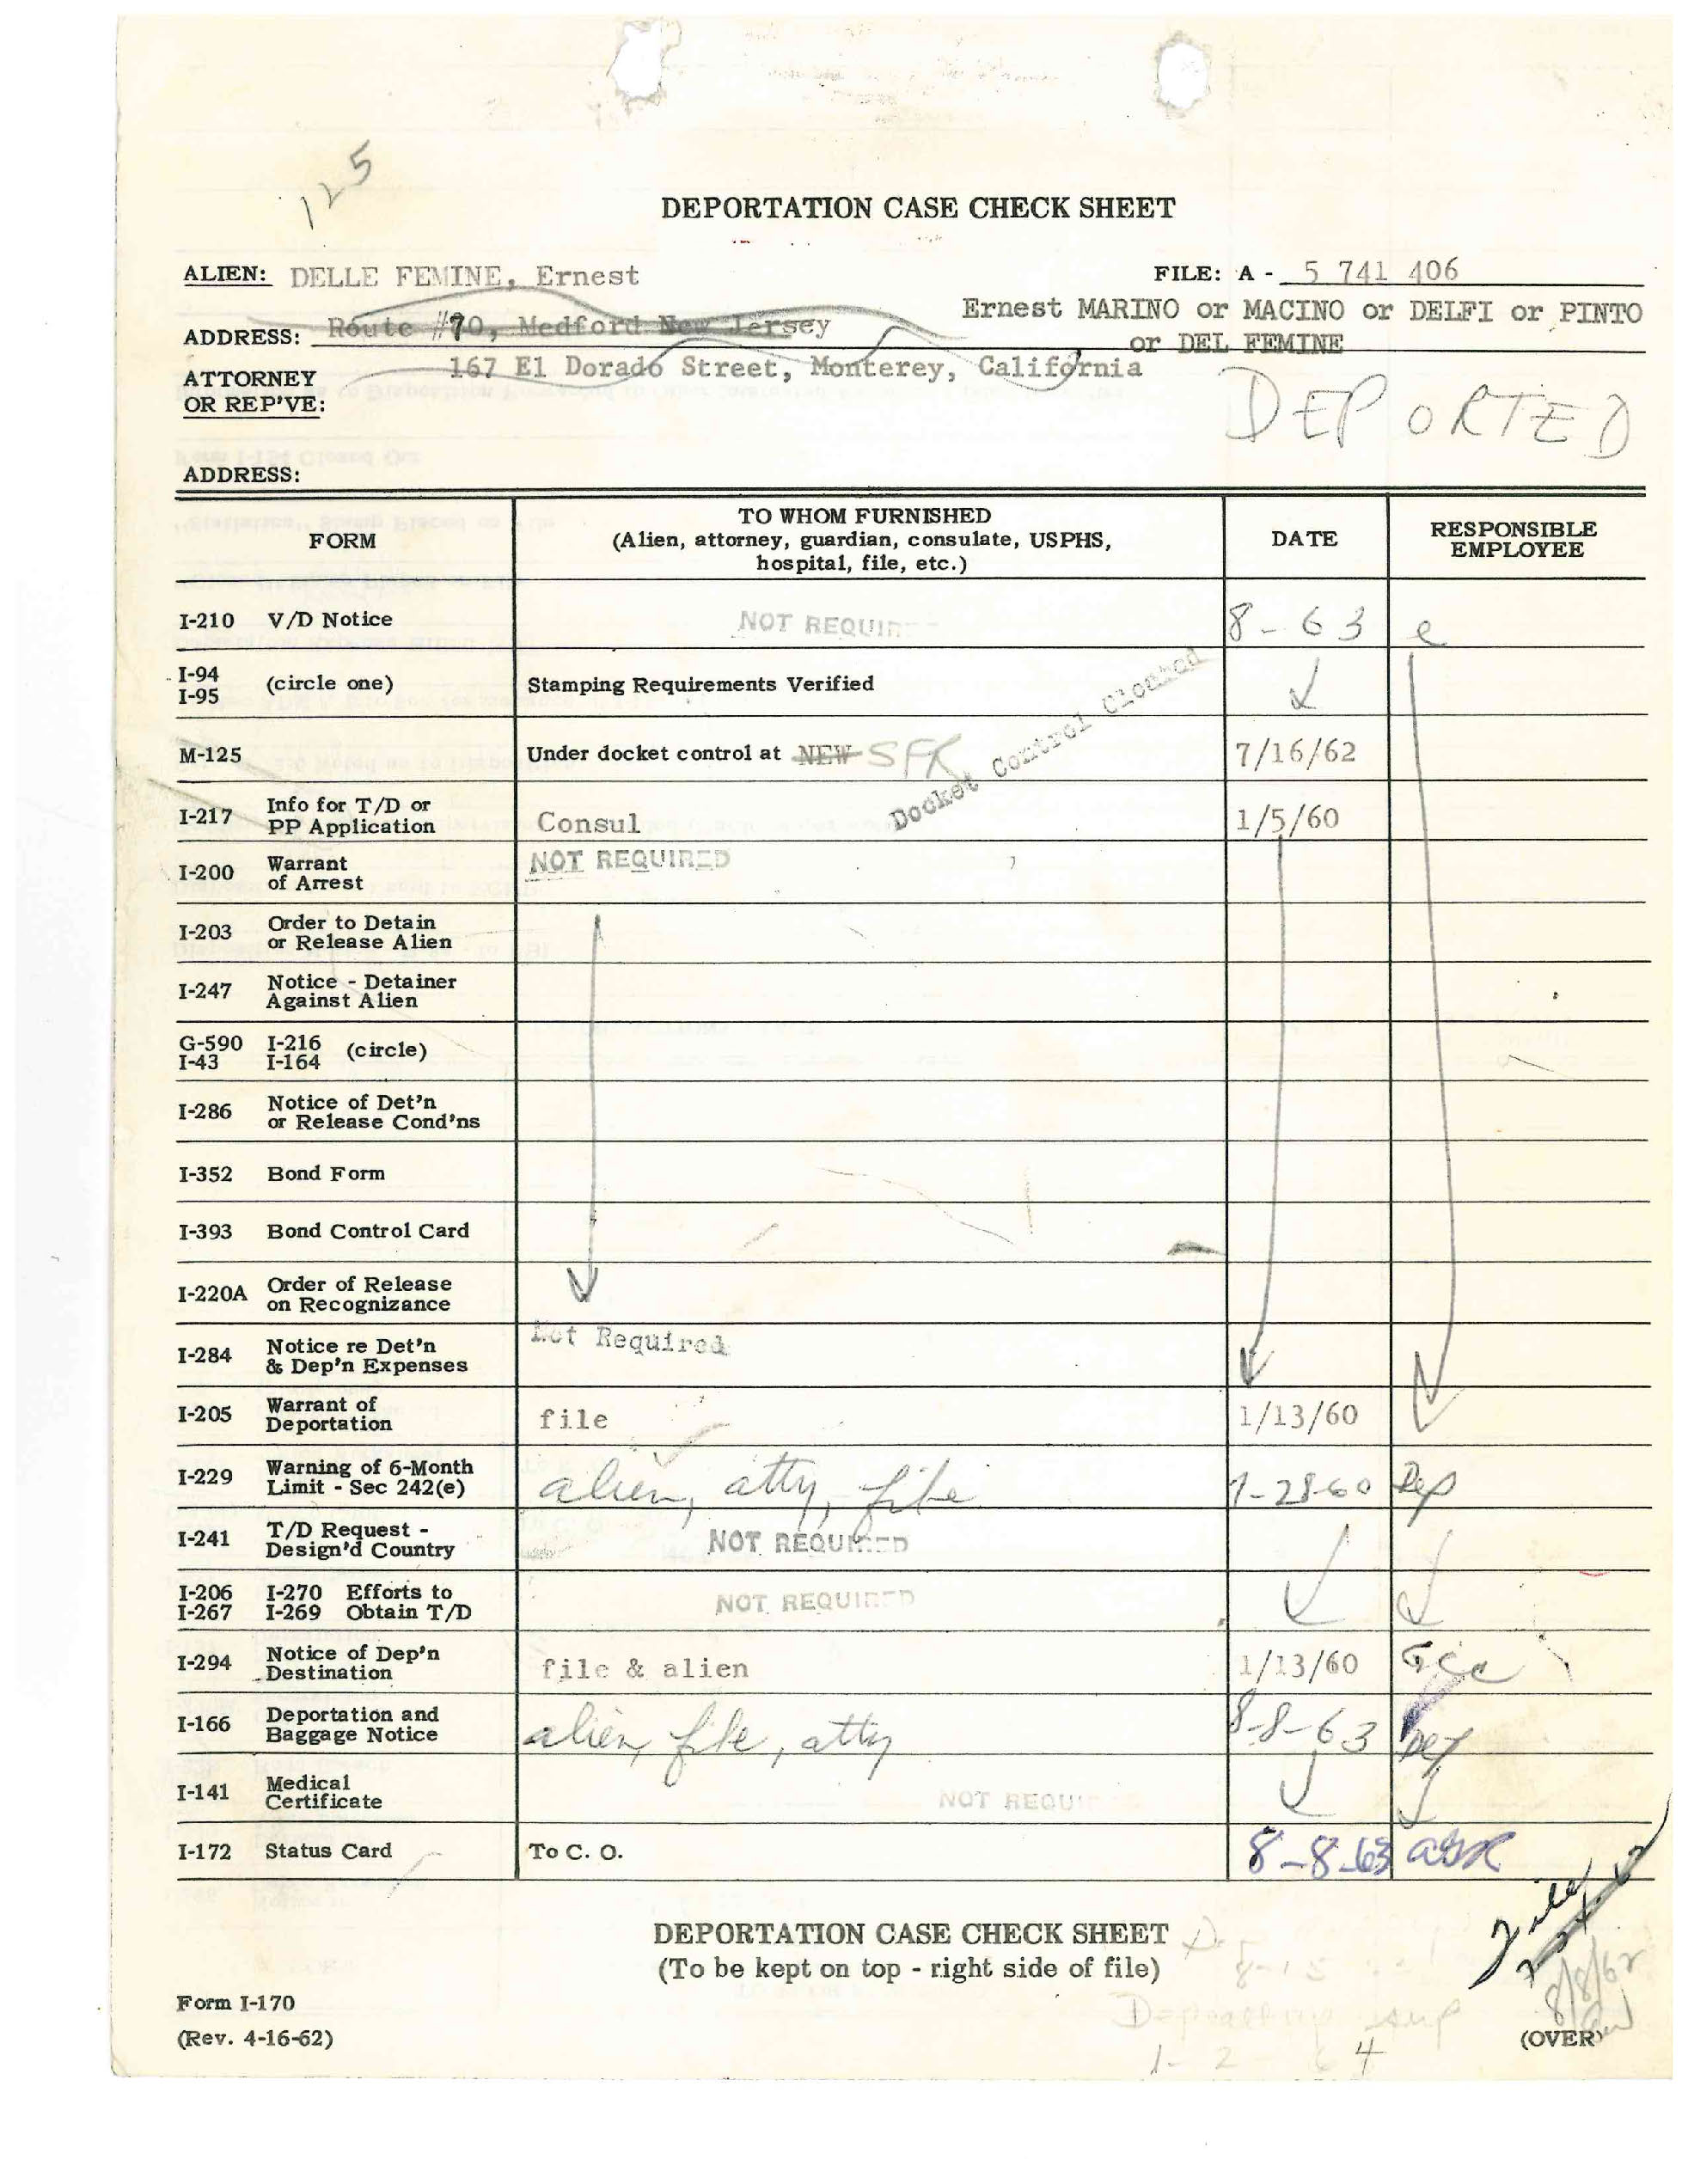 125
DEPORTATION CASE CHECK SHEET
ALIEN: DELLE FEMINE, Ernest FILE: A - 5 741 406
Ernest MARINO or MACINO or DELFI or PINTO
ADDRESS: Route #70, Medford New Jersey or DEL FEMINE
167 El Dorado Street, Monterey, California
ATTORNEY
OR REP'VE:
DEPORTED
ADDRESS:
FORM TO WHOM FURNISHED (Alien, attorney, guardian, consulate, USPHS, hospital, file, etc.) DATE RESPONSIBLE EMPLOYEE
I-210 V/D Notice NOT 8-63 e
I-94 I-95 (circle one) Stamping Requirements Verified
M-125 Under docket control at NEW SFR 7/16/62
Docket Control
I-217 Info for T/D or PP Application Consul 1/5/60
I-200 Warrant of Arrest NOT REQUIRED
I-203 Order to Detain or Release Alien
I-247 Notice - Detainer Against Alien
G-590 I-43 I-216 I-164 (circle)
I-286 Notice of Det'n or Release Cond'ns
I-352 Bond Form
I-393 Bond Control Card
I-220A Order of Release on Recognizance
I-284 Notice re Det'n & Dep'n Expenses Not Required
I-205 Warrant of Deportation file 1/13/60
I-229 Warning of 6-Month Limit - Sec 242(e) alien, atty, file
I-241 T/D Request - Design'd Country NOT REQUIRED
I-206 I-267 I-270 I-269 Efforts to Obtain T/D NOT REQUIRED
I-294 Notice of Dep'n Destination file & alien 1/13/60
I-166 Deportation and Baggage Notice alien, file, atty 8-8-63
I-141 Medical Certificate NOT
I-172 Status Card To C. O. 8-8-63
DEPORTATION CASE CHECK SHEET
(To be kept on top - right side of file)
Form I-170
(Rev. 4-16-62)
(OVER)
1-2-64